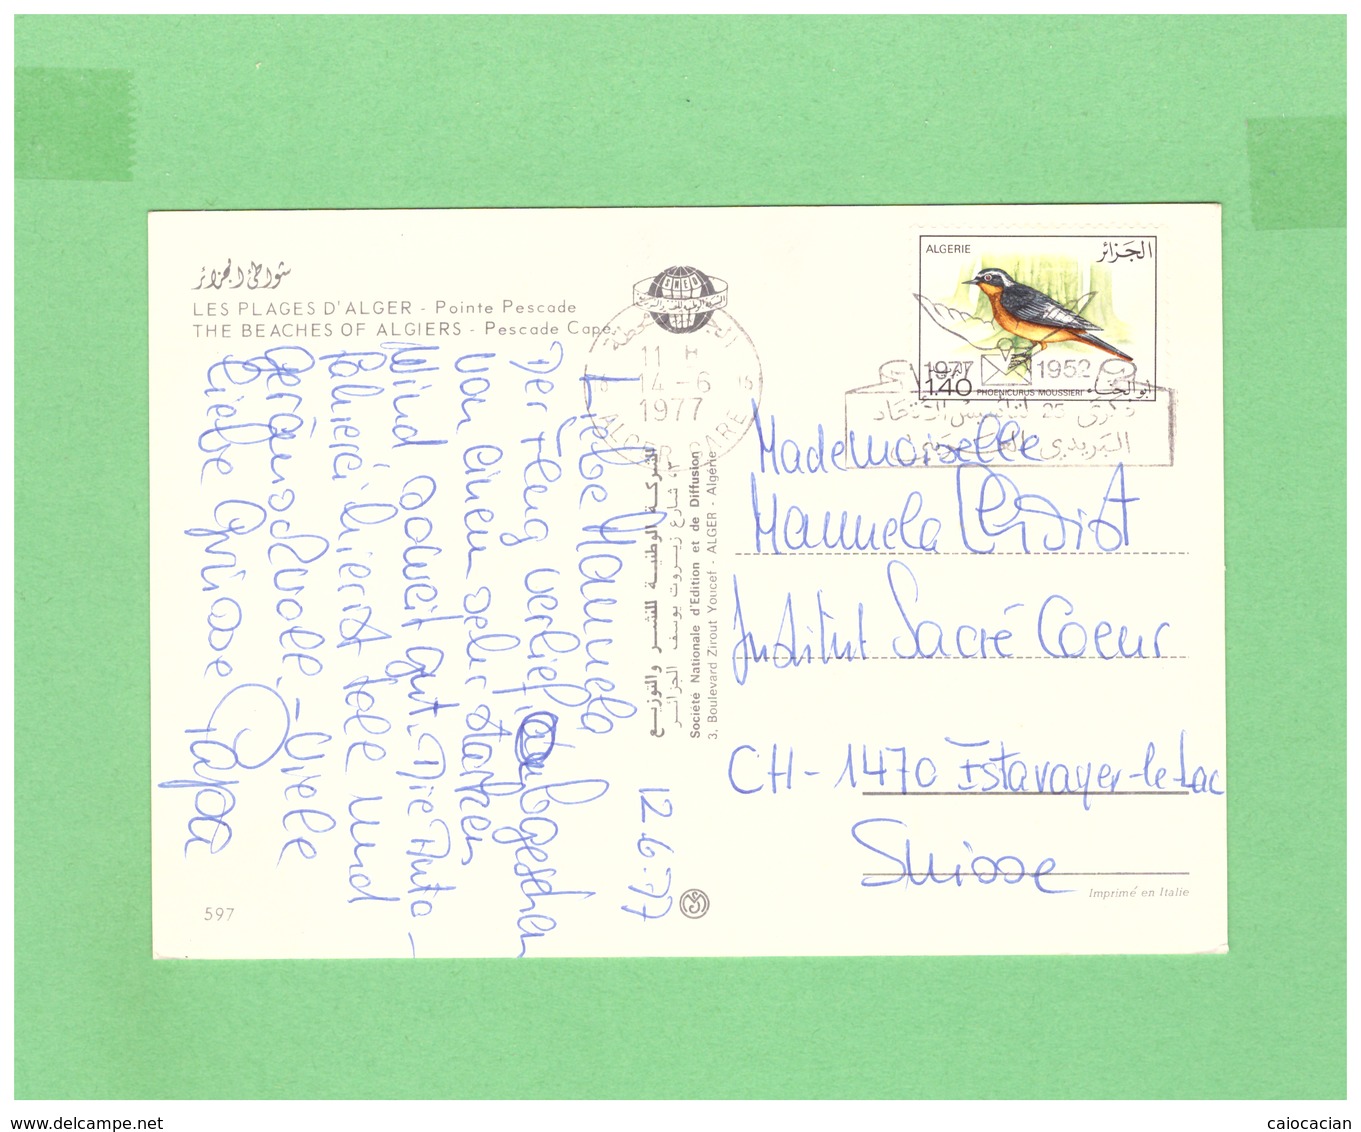 شواطئ الجزائر
LES PLAGES D'ALGER - Pointe Pescade
THE BEACHES OF ALGIERS - Pescade Cape
SNED
ALGERIE
الجزائر
1977 1952
1.40
PHOENICURUS MOUSSIERI
أبو الحناء
11 H
14-6
1977
ALGER GARE
ذكرى 25 لتأسيس الاتحاد
البريدي العربي
12.6.77
Liebe Manuela
Der Flug verlief, abgesehen
von einem sehr starken
Wind soweit gut. Die Auto-
fahrerei hier ist toll und
geräuschvoll. - Viele
liebe Grüsse Papa
الشركة الوطنية للنشر والتوزيع
3، شارع زيروت يوسف الجزائر
Société Nationale d'Edition et de Diffusion
3, Boulevard Zirout Youcef - ALGER - Algérie
Mademoiselle
Manuela
Institut Sacré Coeur
CH-1470 Estavayer-le-Lac
Suisse
Imprimé en Italie
597
www.delcampe.net
calocacian